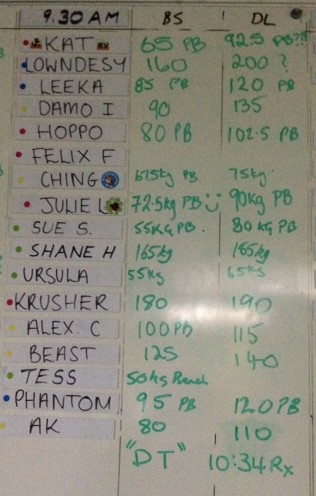 9.30 AM BS DL
KAT 65 PB 92.5 PB??
LOWNDESY 160 200 ?
LEEKA 85 PB 120 PB
DAMO I 90 135
HOPPO 80 PB 102.5 PB
FELIX F
CHING 67.5kg PB 75kg
JULIE L 72.5kg PB 90kg PB
SUE S. 55KG PB. 80 KG PB
SHANE H 165kg 185kg
URSULA 55kg 65kg
KRUSHER 180 190
ALEX. C 100 PB 115
BEAST 125 140
TESS 50kg Bench
PHANTOM 95 PB 120 PB
AK 80 110
"DT" 10:34 Rx